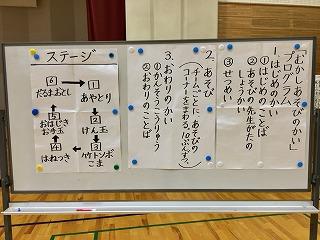 「むかしあそびのかい」
プログラム
1. はじめのかい
①はじめのことば
②あそびの先生がたの
しょうかい
③せつめい
2. あそび
(チームごとに、あそびの
コーナーをまわる。10ぷんずつ)
3. おわりのかい
①かんそうこうりゅう
②おわりのことば
ステージ
1
あやとり
2
けん玉
3
竹トンボ
こま
4
はねつき
5
おはじき
お手玉
6
だるまおとし